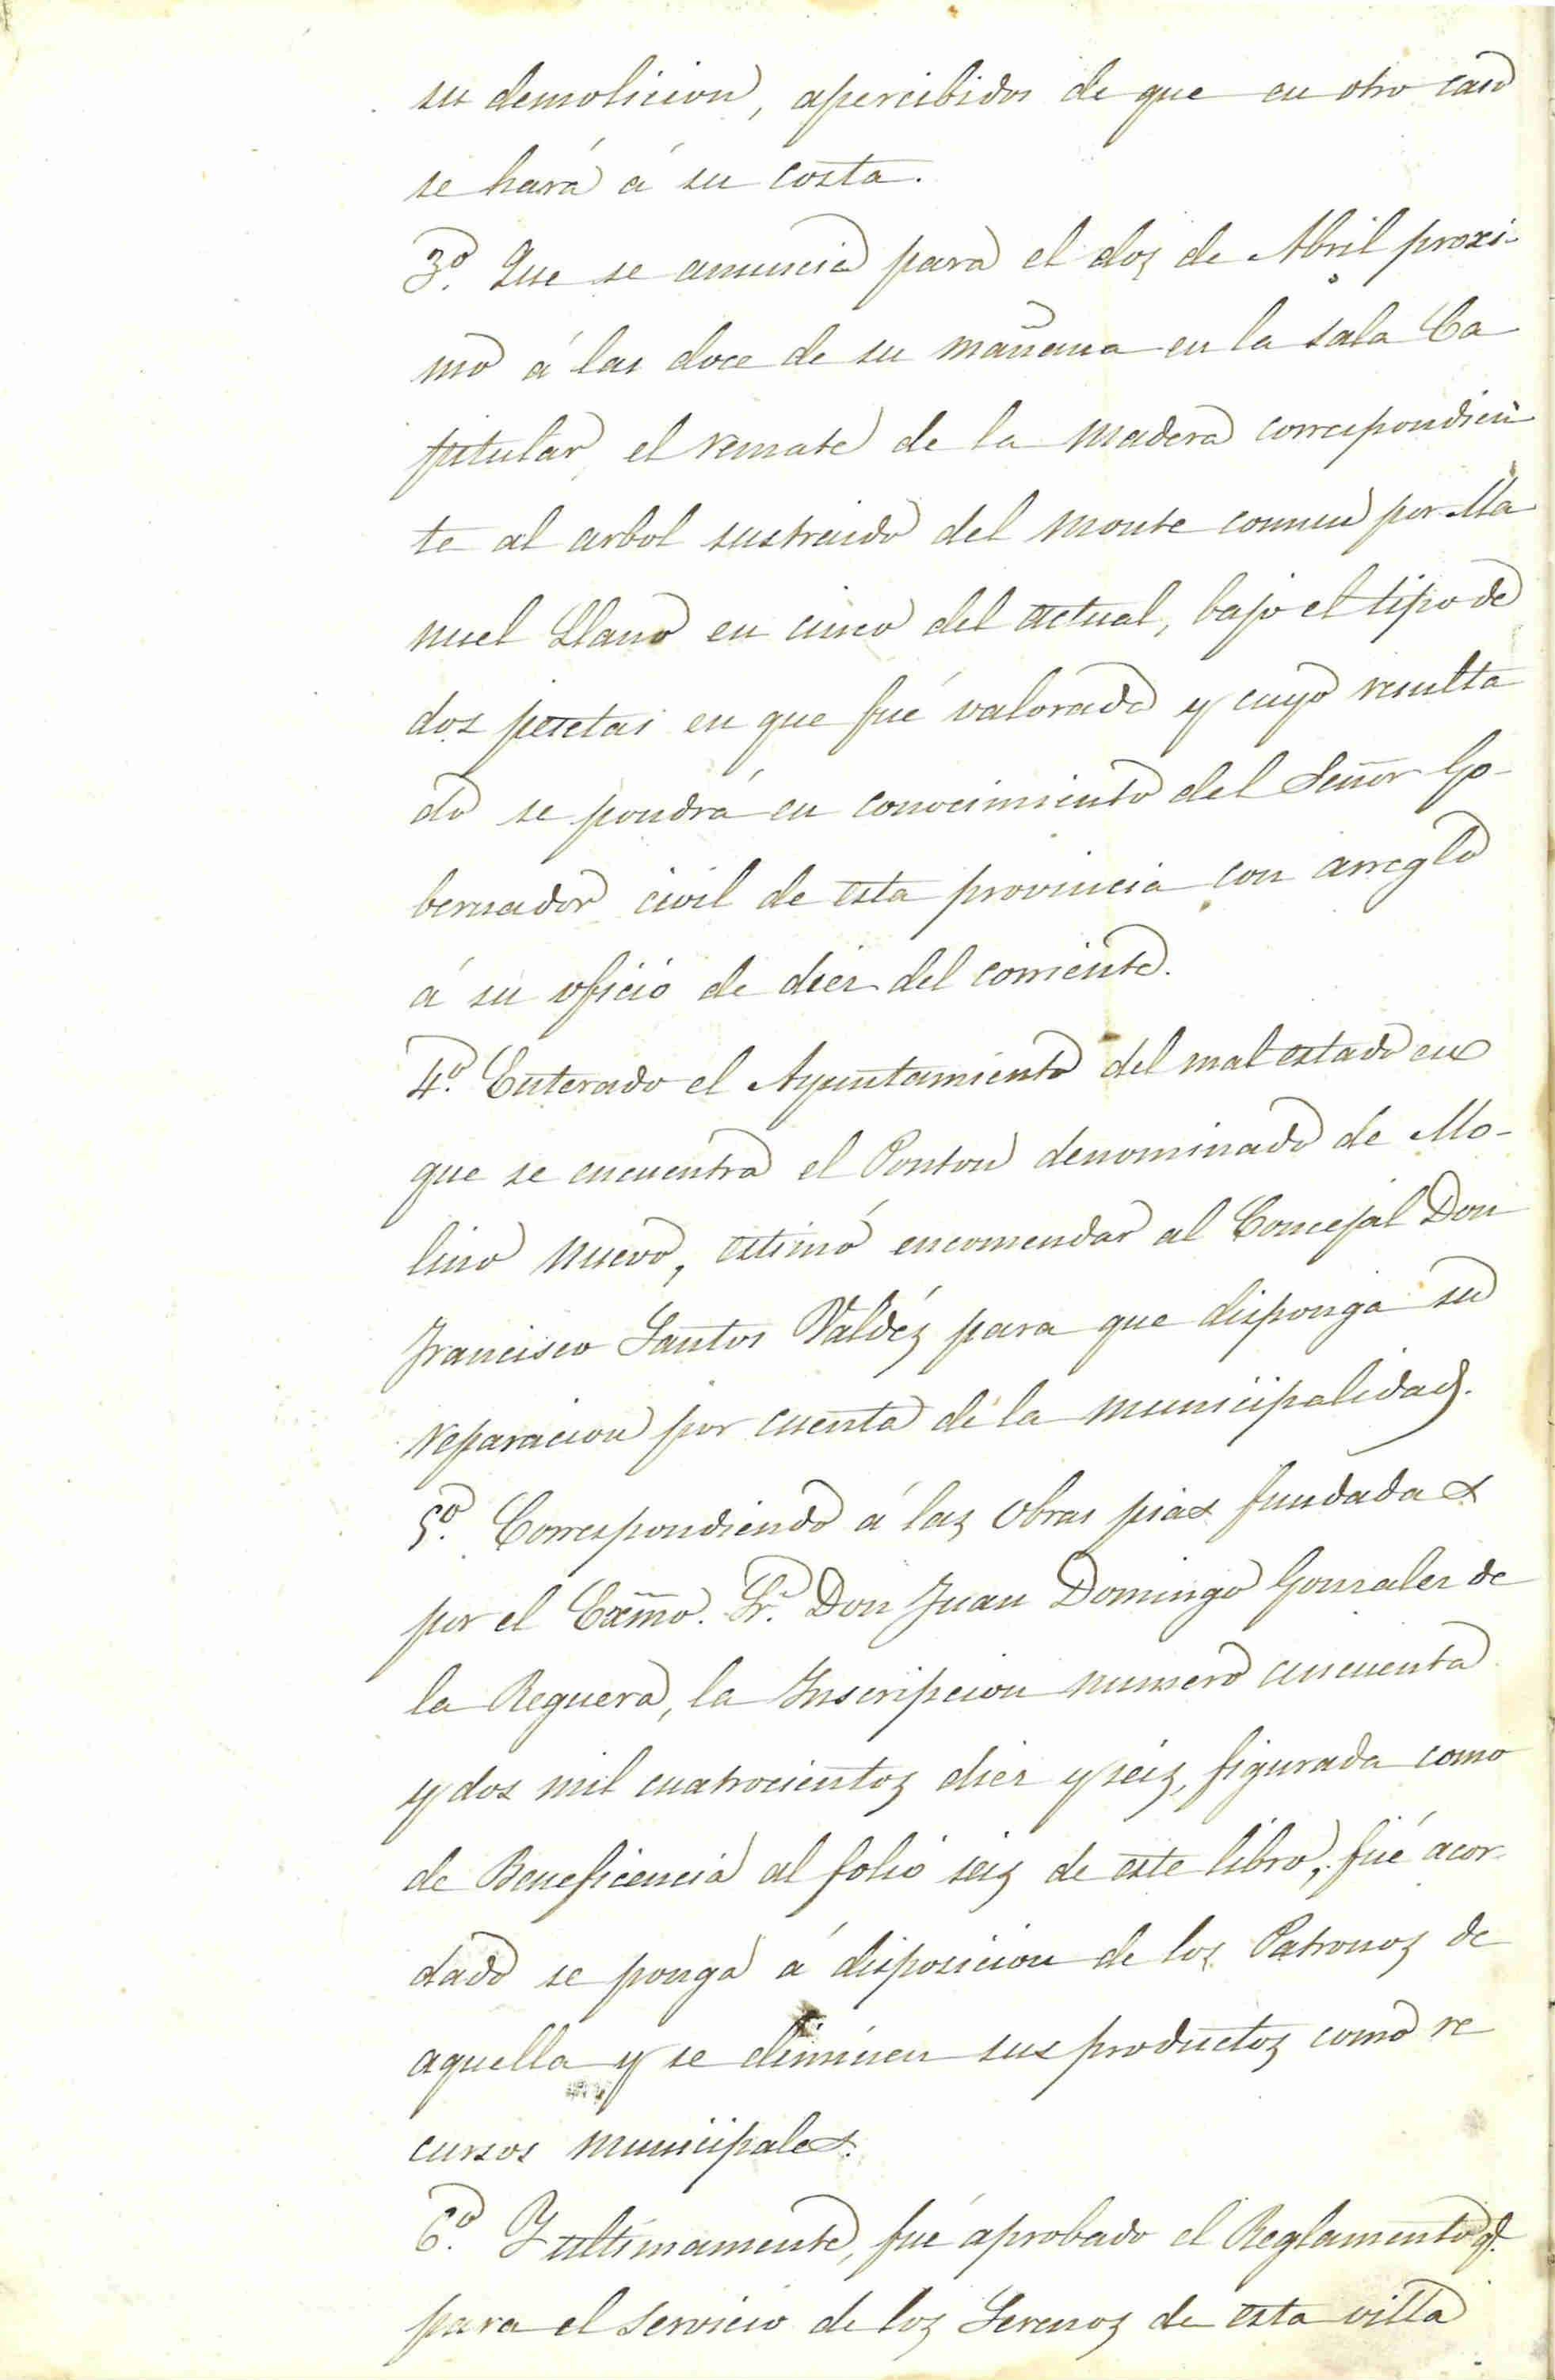 su demolicion, apercibidos de que en otro caso
se hará á su costa.
3º. Que se anuncie para el dos de Abril proxi-
mo á las doce de su mañana en la sala Ca
pitular el remate de la madera correspondien
te al arbol sustraido del monte comun por Ma
nuel Llano en cinco del actual, bajo el tipo de
dos pesetas en que fué valorado y cuyo resulta
do se pondrá en conocimiento del Señor Go-
bernador civil de esta provincia con arreglo
á su oficio de diez del corriente.
4º. Enterado el Ayuntamiento del mal estado en
que se encuentra el Ponton denominado de Mo-
lino nuevo, estimó encomendar al Concejal Don
Francisco Santos Valdéz para que disponga su
reparacion por cuenta de la municipalidad.
5º. Correspondiendo á las Obras pias fundadas
por el Exmo. Sr. Don Juan Domingo Gonzalez de
la Reguera, la Inscripcion numero cincuenta
y dos mil cuatrocientos diez y seis, figurada como
de Beneficencia al folio seis de este libro, fué acor
dado se ponga á disposicion de los Patronos de
aquella y se eliminen sus productos como re
cursos municipales.
6º. Y ultimamente, fué aprobado el Reglamento q.
para el servicio de los Serenos de esta villa